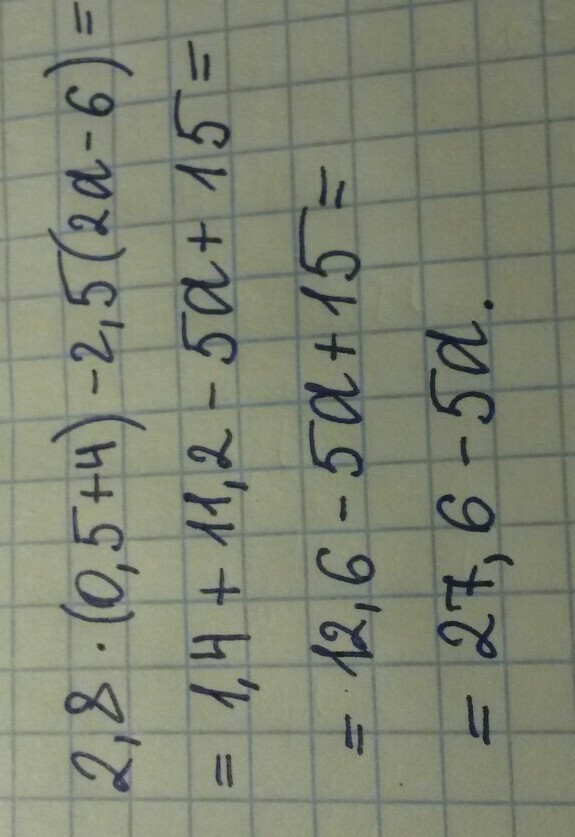 2,8 · (0,5+4) - 2,5(2a-6) =
= 1,4 + 11,2 - 5a + 15 =
= 12,6 - 5a + 15 =
= 27,6 - 5a.